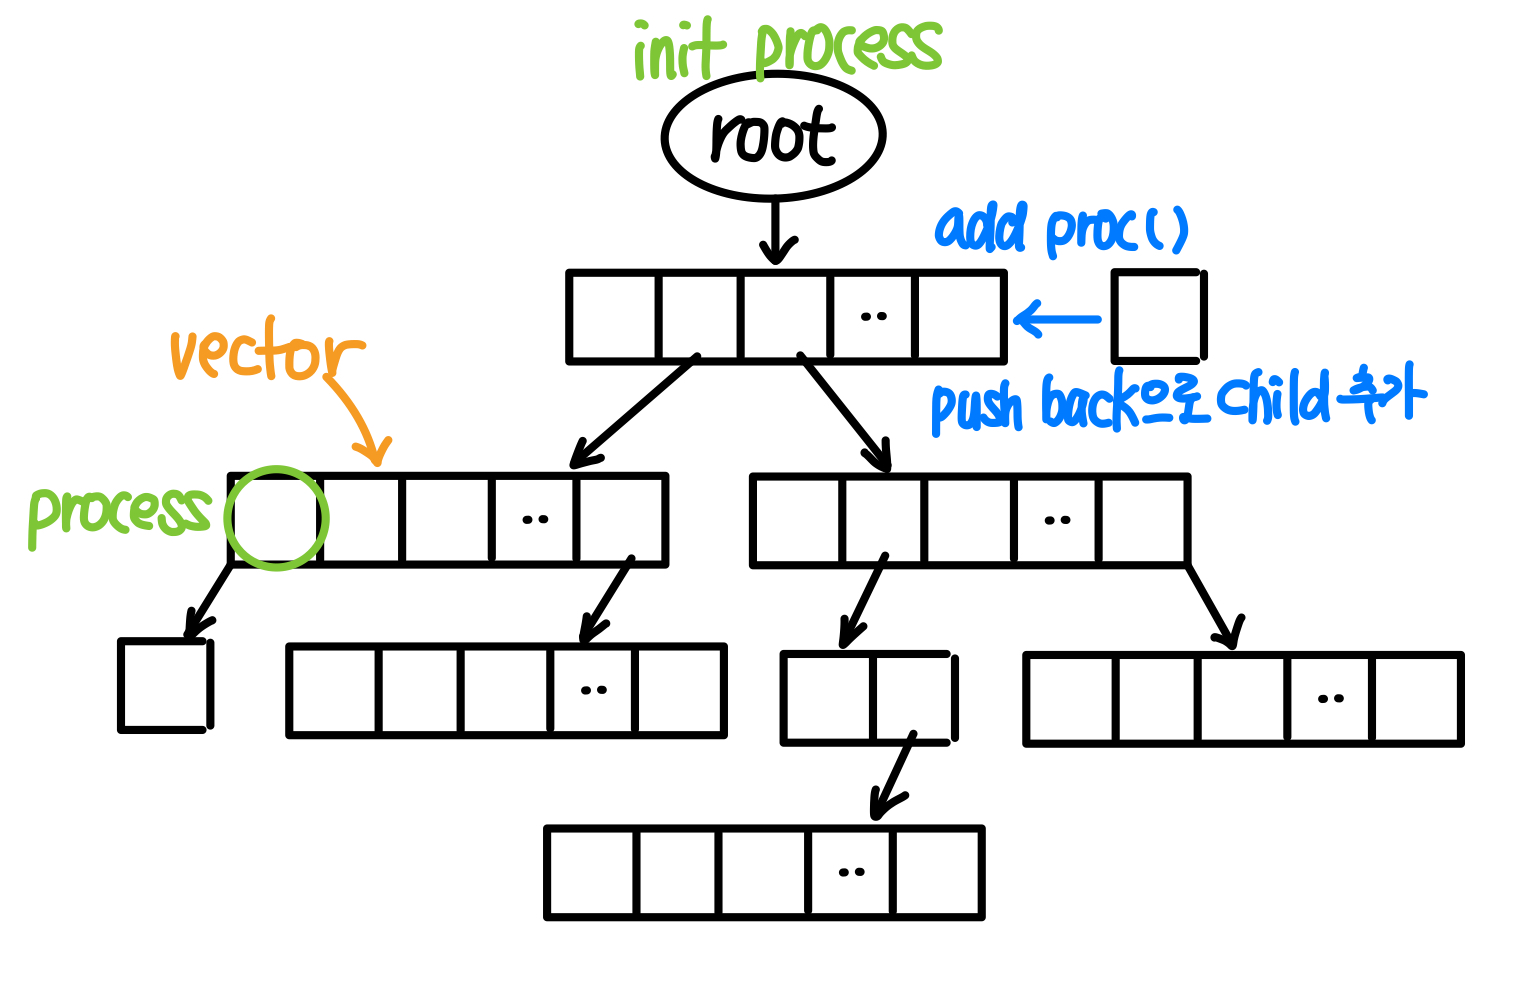 init process
root
add proc()
vector
push back으로 child 추가
process